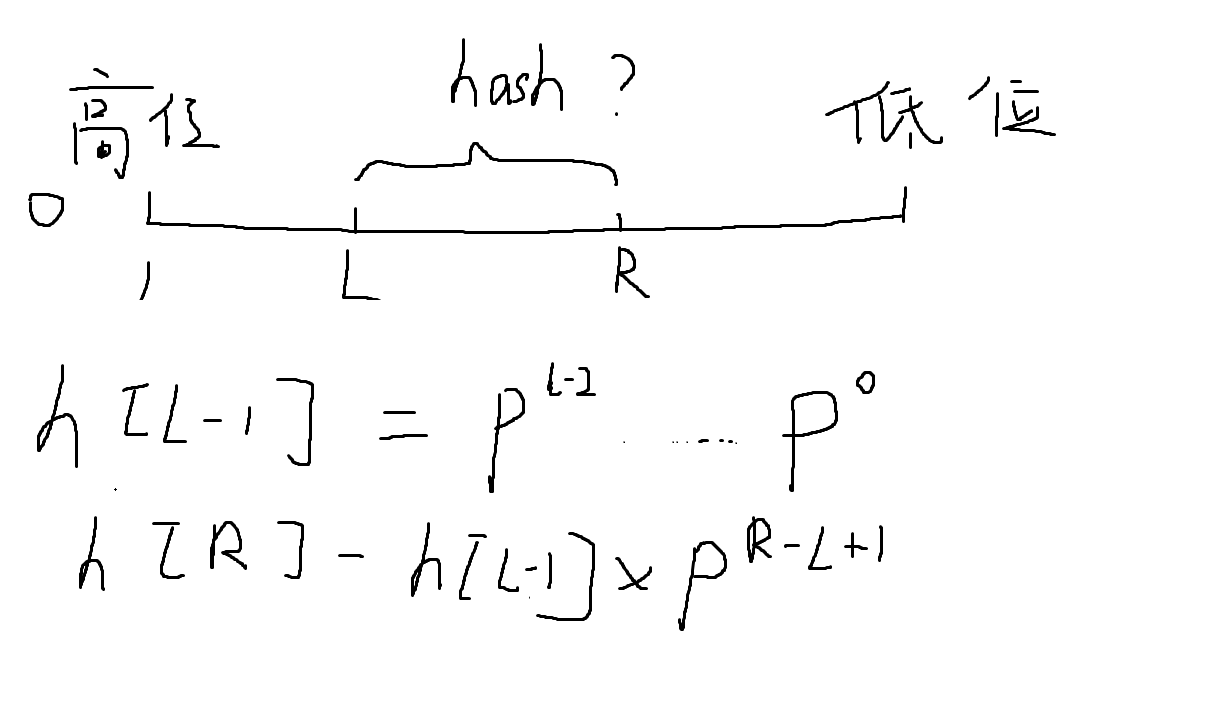 hash?
高位 低位
0
1 L R
h[L-1] = p^{L-2} ...... p^0
h[R] - h[L-1] × p^{R-L+1}